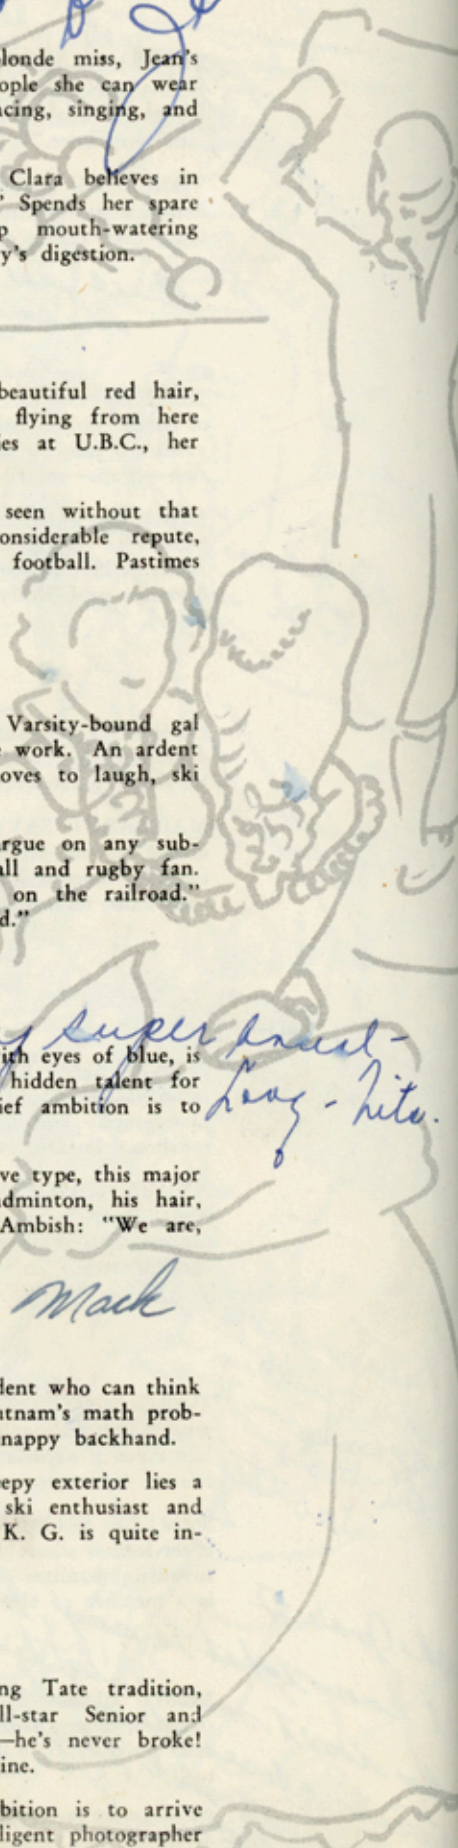 londe miss, Jean's
ople she can wear
cing, singing, and
Clara believes in
" Spends her spare
p mouth-watering
y's digestion.
beautiful red hair,
flying from here
ies at U.B.C., her
seen without that
onsiderable repute,
football. Pastimes
Varsity-bound gal
work. An ardent
oves to laugh, ski
argue on any sub-
all and rugby fan.
on the railroad."
d."
super
ith eyes of blue, is
hidden talent for
ief ambition is to
ve type, this major
dminton, his hair,
Ambish: "We are,
Mack
dent who can think
utnam's math prob-
nappy backhand.
epy exterior lies a
ski enthusiast and
K. G. is quite in-
ng Tate tradition,
ll-star Senior and
—he's never broke!
ine.
bition is to arrive
ligent photographer